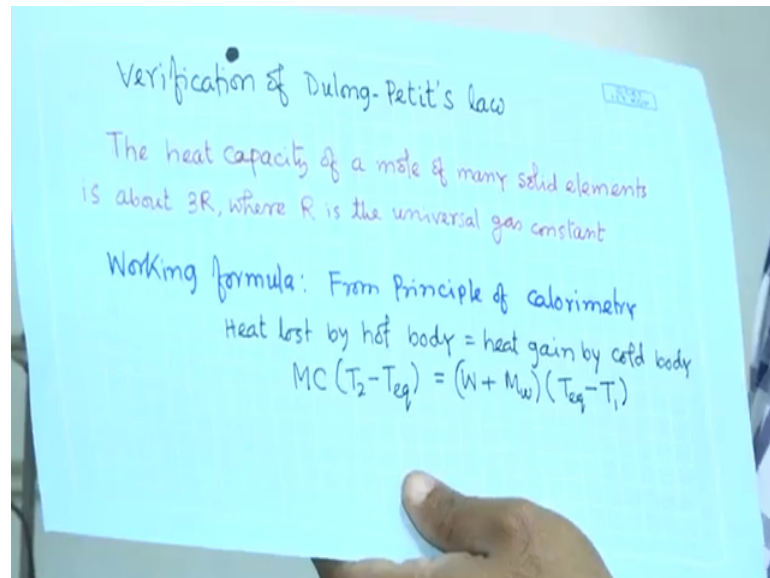 Verification of Dulong-Petit's law
The heat capacity of a mole of many solid elements
is about 3R, where R is the universal gas constant
Working formula: From Principle of calorimetry
Heat lost by hot body = heat gain by cold body
MC (T₂-T_eq) = (W + M_w) (T_eq-T₁)